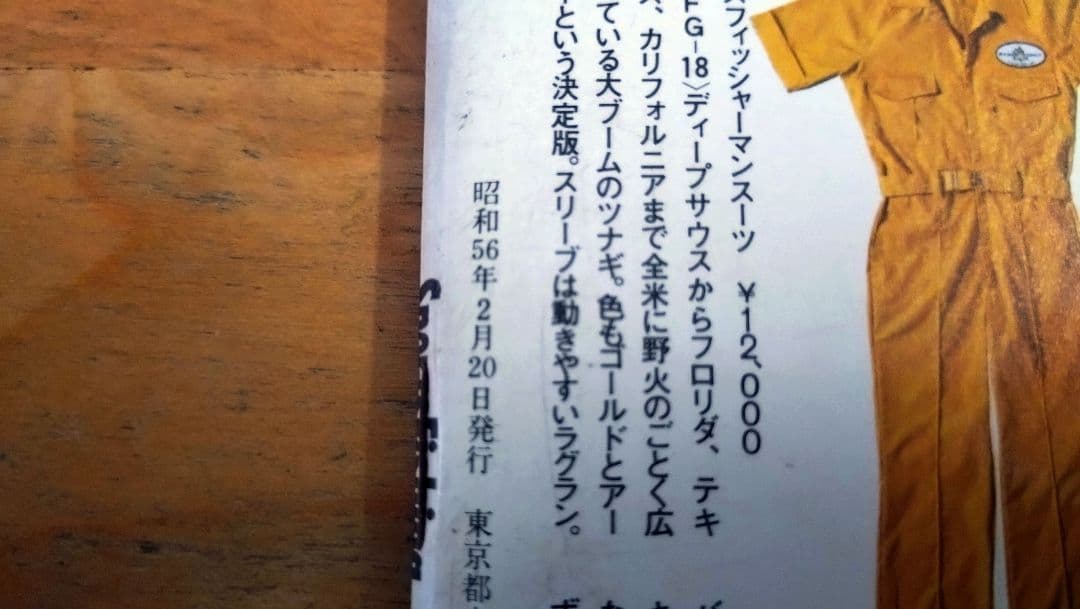 スフィッシャーマンスーツ ￥12,000
FG-18〉ディープサウスからフロリダ、テキ
ス、カリフォルニアまで全米に野火のごとく広
ている大ブームのツナギ。色もゴールドとアー
という決定版。スリーブは動きやすいラグラン。
昭和56年2月20日発行 東京都